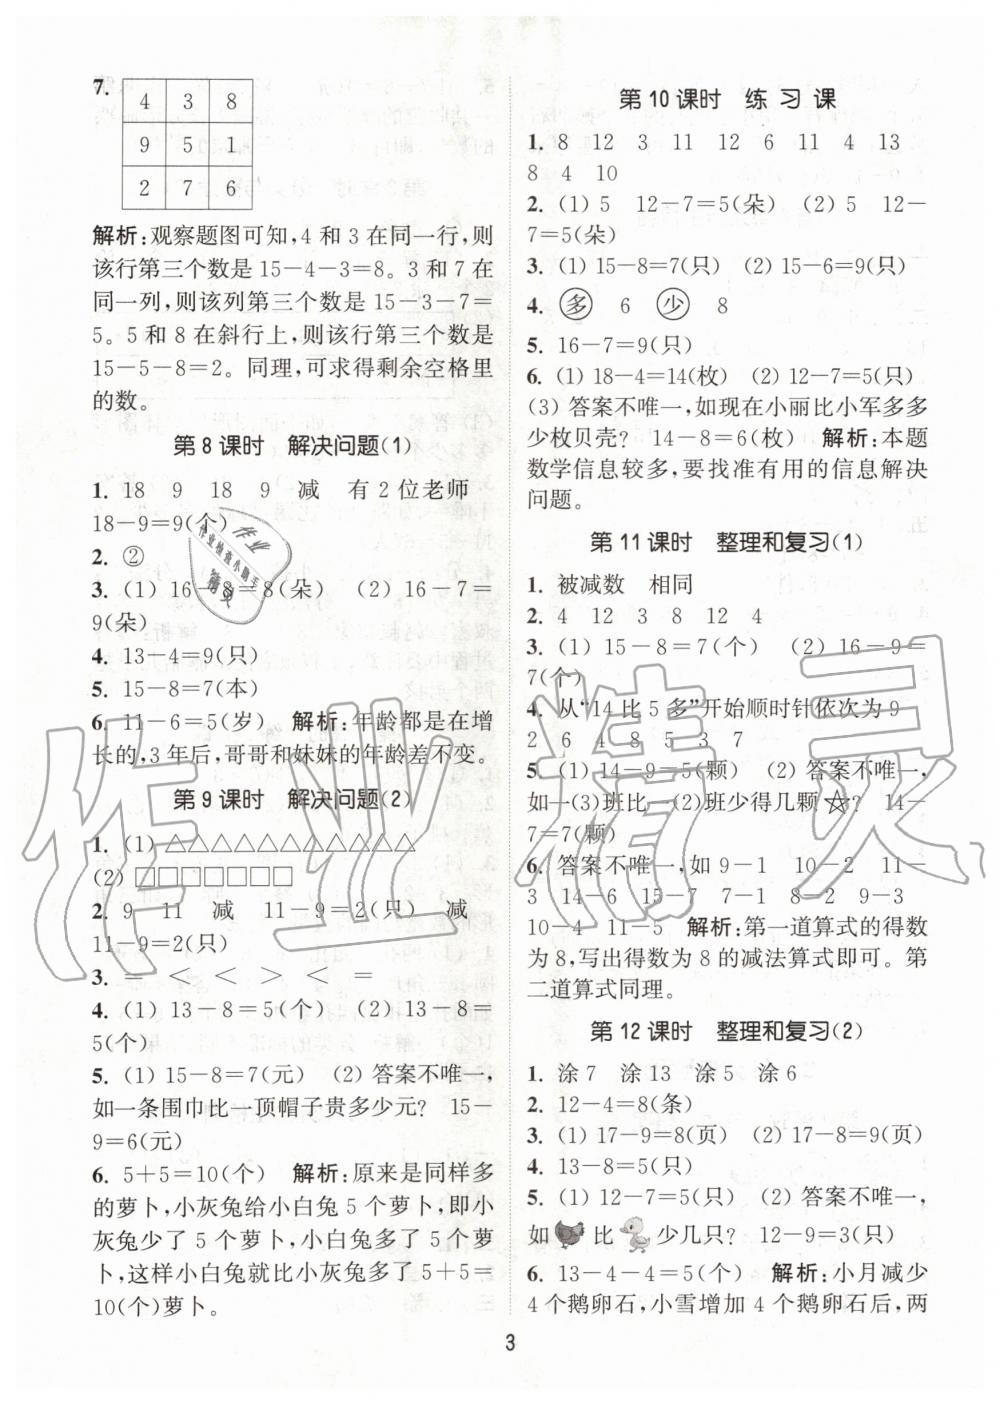 7.
4 3 8
9 5 1
2 7 6
解析:观察题图可知,4 和 3 在同一行,则
该行第三个数是 15-4-3=8。3 和 7 在
同一列,则该列第三个数是 15-3-7=
5。5 和 8 在斜行上,则该行第三个数是
15-5-8=2。同理,可求得剩余空格里
的数。
第 8 课时 解决问题(1)
1. 18 9 18 9 减 有 2 位老师
18-9=9(个)
2. ②
3. (1) 16-8=8(朵) (2) 16-7=
9(朵)
4. 13-4=9(只)
5. 15-8=7(本)
6. 11-6=5(岁) 解析:年龄都是在增
长的,3 年后,哥哥和妹妹的年龄差不变。
第 9 课时 解决问题(2)
1. (1) △△△△△△△△△△△
(2) □□□□□□□
2. 9 11 减 11-9=2(只) 减
11-9=2(只)
3. = < < > < =
4. (1) 13-8=5(个) (2) 13-8=
5(个)
5. (1) 15-8=7(元) (2) 答案不唯一,
如一条围巾比一顶帽子贵多少元? 15-
9=6(元)
6. 5+5=10(个) 解析:原来是同样多
的萝卜,小灰兔给小白兔 5 个萝卜,即小
灰兔少了 5 个萝卜,小白兔多了 5 个萝
卜,这样小白兔就比小灰兔多了 5+5=
10(个)萝卜。
第 10 课时 练 习 课
1. 8 12 3 11 12 6 11 4 13
8 4 10
2. (1) 5 12-7=5(朵) (2) 5 12-
7=5(朵)
3. (1) 15-8=7(只) (2) 15-6=9(只)
4. 多 6 少 8
5. 16-7=9(只)
6. (1) 18-4=14(枚) (2) 12-7=5(只)
(3) 答案不唯一,如现在小丽比小军多多
少枚贝壳? 14-8=6(枚) 解析:本题
数学信息较多,要找准有用的信息解决
问题。
第 11 课时 整理和复习(1)
1. 被减数 相同
2. 4 12 3 8 12 4
3. (1) 15-8=7(个) (2) 16-9=
7(个)
4. 从“14 比 5 多”开始顺时针依次为 9
2 6 4 8 5 3 7
5. (1) 14-9=5(颗) (2) 答案不唯一,
如一(3)班比一(2)班少得几颗☆? 14-
7=7(颗)
6. 答案不唯一,如 9-1 10-2 11-
3 14-6 15-7 7-1 8-2 9-3
10-4 11-5 解析:第一道算式的得数
为 8,写出得数为 8 的减法算式即可。第
二道算式同理。
第 12 课时 整理和复习(2)
1. 涂 7 涂 13 涂 5 涂 6
2. 12-4=8(条)
3. (1) 17-9=8(页) (2) 17-8=9(页)
4. 13-8=5(只)
5. (1) 12-7=5(只) (2) 答案不唯一,
如 比 少几只? 12-9=3(只)
6. 13-4-4=5(个) 解析:小月减少
4 个鹅卵石,小雪增加 4 个鹅卵石后,两
3
作业精灵
作业
作业检查小助手
精灵